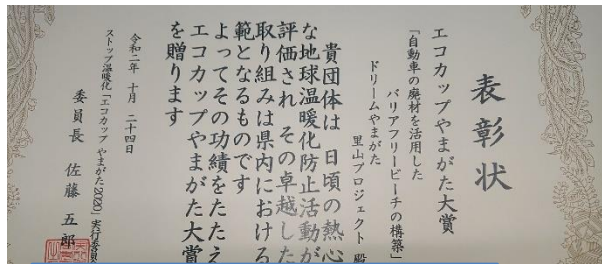 表彰状
エコカップやまがた大賞
「自動車の廃材を活用した
バリアフリービーチの構築」
ドリームやまがた
里山プロジェクト 殿
貴団体は 日頃の熱心
な地球温暖化防止活動が
評価され その卓越した
取り組みは県内における
範となるものです
よってその功績をたたえ
エコカップやまがた大賞
を贈ります
令和二年 十月 二十四日
ストップ温暖化「エコカップ やまがた2020」実行委員
委員長 佐藤 五郎